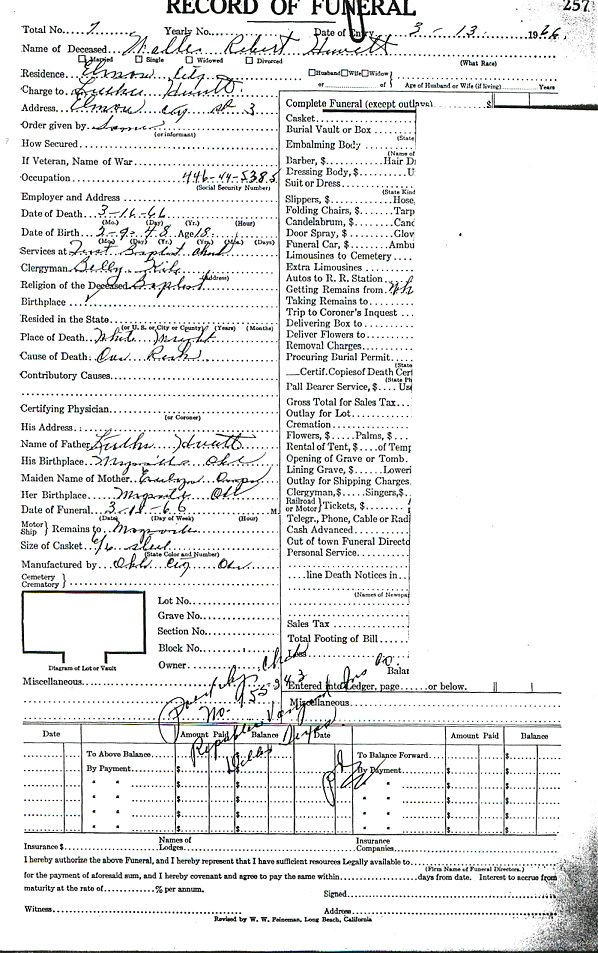 RECORD OF FUNERAL 257
Total No. 7 Yearly No. Date of Entry 3-13- 1966
Name of Deceased Robert
Married Single Widowed Divorced (What Race)
Residence Elmore City Husband Wife Widow
or of Age of Husband or Wife (if living) Years
Charge to
Address Elmore City Rt 3
Order given by Same
(or informant)
How Secured
If Veteran, Name of War
Occupation 446-44-5385
(Social Security Number)
Employer and Address
Date of Death 3-16-66
(Mo.) (Day) (Yr.) (Hour)
Date of Birth 2-9-48 Age 18
(Mo.) (Day) (Yr.) (Yrs.) (Mos.) (Days)
Services at First Baptist Church
Clergyman
(Address)
Religion of the Deceased Baptist
Birthplace
Resided in the State
(or U. S. or City or County) (Years) (Months)
Place of Death White
Cause of Death: Car
Contributory Causes
Certifying Physician
(or Coroner)
His Address
Name of Father
His Birthplace Maysville Okl
Maiden Name of Mother Evelyn
Her Birthplace Okl
Date of Funeral 3-18-66 M
(Date) (Day of Week) (Hour)
Motor Ship Remains to Maysville
Size of Casket 6/6 steel
(State Color and Number)
Manufactured by Okla City
Cemetery Crematory
Lot No.
Grave No.
Section No.
Block No.
Owner
Diagram of Lot or Vault
Miscellaneous
Complete Funeral (except outlays) $
Casket
Burial Vault or Box
(State
Embalming Body
(Name of
Barber, $ Hair D
Dressing Body, $ U
Suit or Dress
(State Kind
Slippers, $ Hose,
Folding Chairs, $ Tarp
Candelabrum, $ Cand
Door Spray, $ Glov
Funeral Car, $ Ambu
Limousines to Cemetery
Extra Limousines
Autos to R. R. Station
Getting Remains from Wh
Taking Remains to
Trip to Coroner's Inquest
Delivering Box to
Deliver Flowers to
Removal Charges
Procuring Burial Permit
(State
Certif. Copies of Death Cert
(State Ph
Pall Bearer Service, $ Us
Gross Total for Sales Tax
Outlay for Lot
Cremation
Flowers, $ Palms, $
Rental of Tent, $ of Temp
Opening of Grave or Tomb
Lining Grave, $ Loweri
Outlay for Shipping Charges
Clergyman, $ Singers, $
Railroad or Motor Tickets, $
Telegr., Phone, Cable or Radi
Cash Advanced
Out of town Funeral Directo
Personal Service
line Death Notices in
(Names of Newspa
Sales Tax
Total Footing of Bill
Less
Balan
Entered into Ledger, page or below.
Miscellaneous
No. 955243 Ins Co.
Date Amount Paid Balance Date Amount Paid Balance
To Above Balance $ $ To Balance Forward $ $
By Payment $ $ By Payment $ $
" " $ $ " " $ $
" " $ $ " " $ $
" " $ $ " " $ $
" " $ $ " " $ $
Insurance $ Names of Lodges Insurance Companies
I hereby authorize the above Funeral, and I hereby represent that I have sufficient resources Legally available to
(Firm Name of Funeral Directors.)
for the payment of aforesaid sum, and I hereby covenant and agree to pay the same within days from date. Interest to accrue from
maturity at the rate of % per annum.
Signed
Witness Address
Revised by W. W. Feineman, Long Beach, California